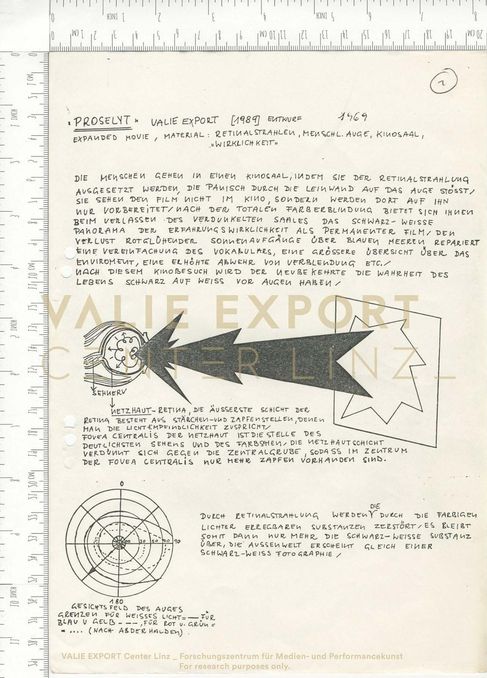 2
"PROSELYT" VALIE EXPORT [1989] ENTWURF 1969
EXPANDED MOVIE, MATERIAL: RETINALSTRAHLEN, MENSCHL. AUGE, KINOSAAL,
"WIRKLICHKEIT"
DIE MENSCHEN GEHEN IN EINEN KINOSAAL, INDEM SIE DER RETINALSTRAHLUNG
AUSGESETZT WERDEN, DIE PANISCH DURCH DIE LEINWAND AUF DAS AUGE STÖSST/
SIE SEHEN DEN FILM NICHT IM KINO, SONDERN WERDEN DORT AUF IHN
NUR VORBEREITET/ NACH DER TOTALEN FARBERBLINDUNG BIETET SICH IHNEN
BEIM VERLASSEN DES VERDUNKELTEN SAALES DAS SCHWARZ-WEISSE
PANORAMA DER ERFAHRUNGSWIRKLICHKEIT ALS PERMANENTER FILM/ DEN
VERLUST ROTGLÜHENDER SONNENAUFGÄNGE ÜBER BLAUEN MEEREN REPARIERT
EINE VEREINFACHUNG DES VOKABULARS, EINE GRÖSSERE ÜBERSICHT ÜBER DAS
ENVIROMENT, EINE ERHÖHTE ABWEHR VON VERBLENDUNG ETC./
NACH DIESEM KINOBESUCH WIRD DER NEUBEKEHRTE DIE WAHRHEIT DES
LEBENS SCHWARZ AUF WEISS VOR AUGEN HABEN/
VALIE EXPORT
CENTER LINZ_
SEHNERV
NETZHAUT-RETINA, DIE ÄUSSERSTE SCHICHT DER
RETINA BESTEHT AUS STÄBCHEN- UND ZAPFENSTELLEN, DENEN
MAN DIE LICHTEMPFINDLICHKEIT ZUSPRICHT/
FOVEA CENTRALIS DER NETZHAUT IST DIE STELLE DES
DEUTLICHSTEN SEHENS UND DES FARBSINNS/ DIE NETZHAUTSCHICHT
VERDÜNNT SICH GEGEN DIE ZENTRALGRUBE, SODASS IM ZENTRUM
DER FOVEA CENTRALIS NUR MEHR ZAPFEN VORHANDEN SIND.
0
DURCH RETINALSTRAHLUNG WERDEN DIE DURCH DIE FARBIGEN
LICHTER ERREGBAREN SUBSTANZEN ZERSTÖRT/ ES BLEIBT
SOMIT DANN NUR MEHR DIE SCHWARZ-WEISSE SUBSTANZ
ÜBER, DIE AUSSENWELT ERSCHEINT GLEICH EINER
SCHWARZ-WEISS FOTOGRAPHIE/
180
GESICHTSFELD DES AUGES
GRENZEN FÜR WEISSES LICHT = —, FÜR
BLAU U GELB - - -, FÜR ROT U. GRÜN =
= .... (NACH ABDERHALDEN).
VALIE EXPORT Center Linz _ Forschungszentrum für Medien- und Performancekunst
For research purposes only.